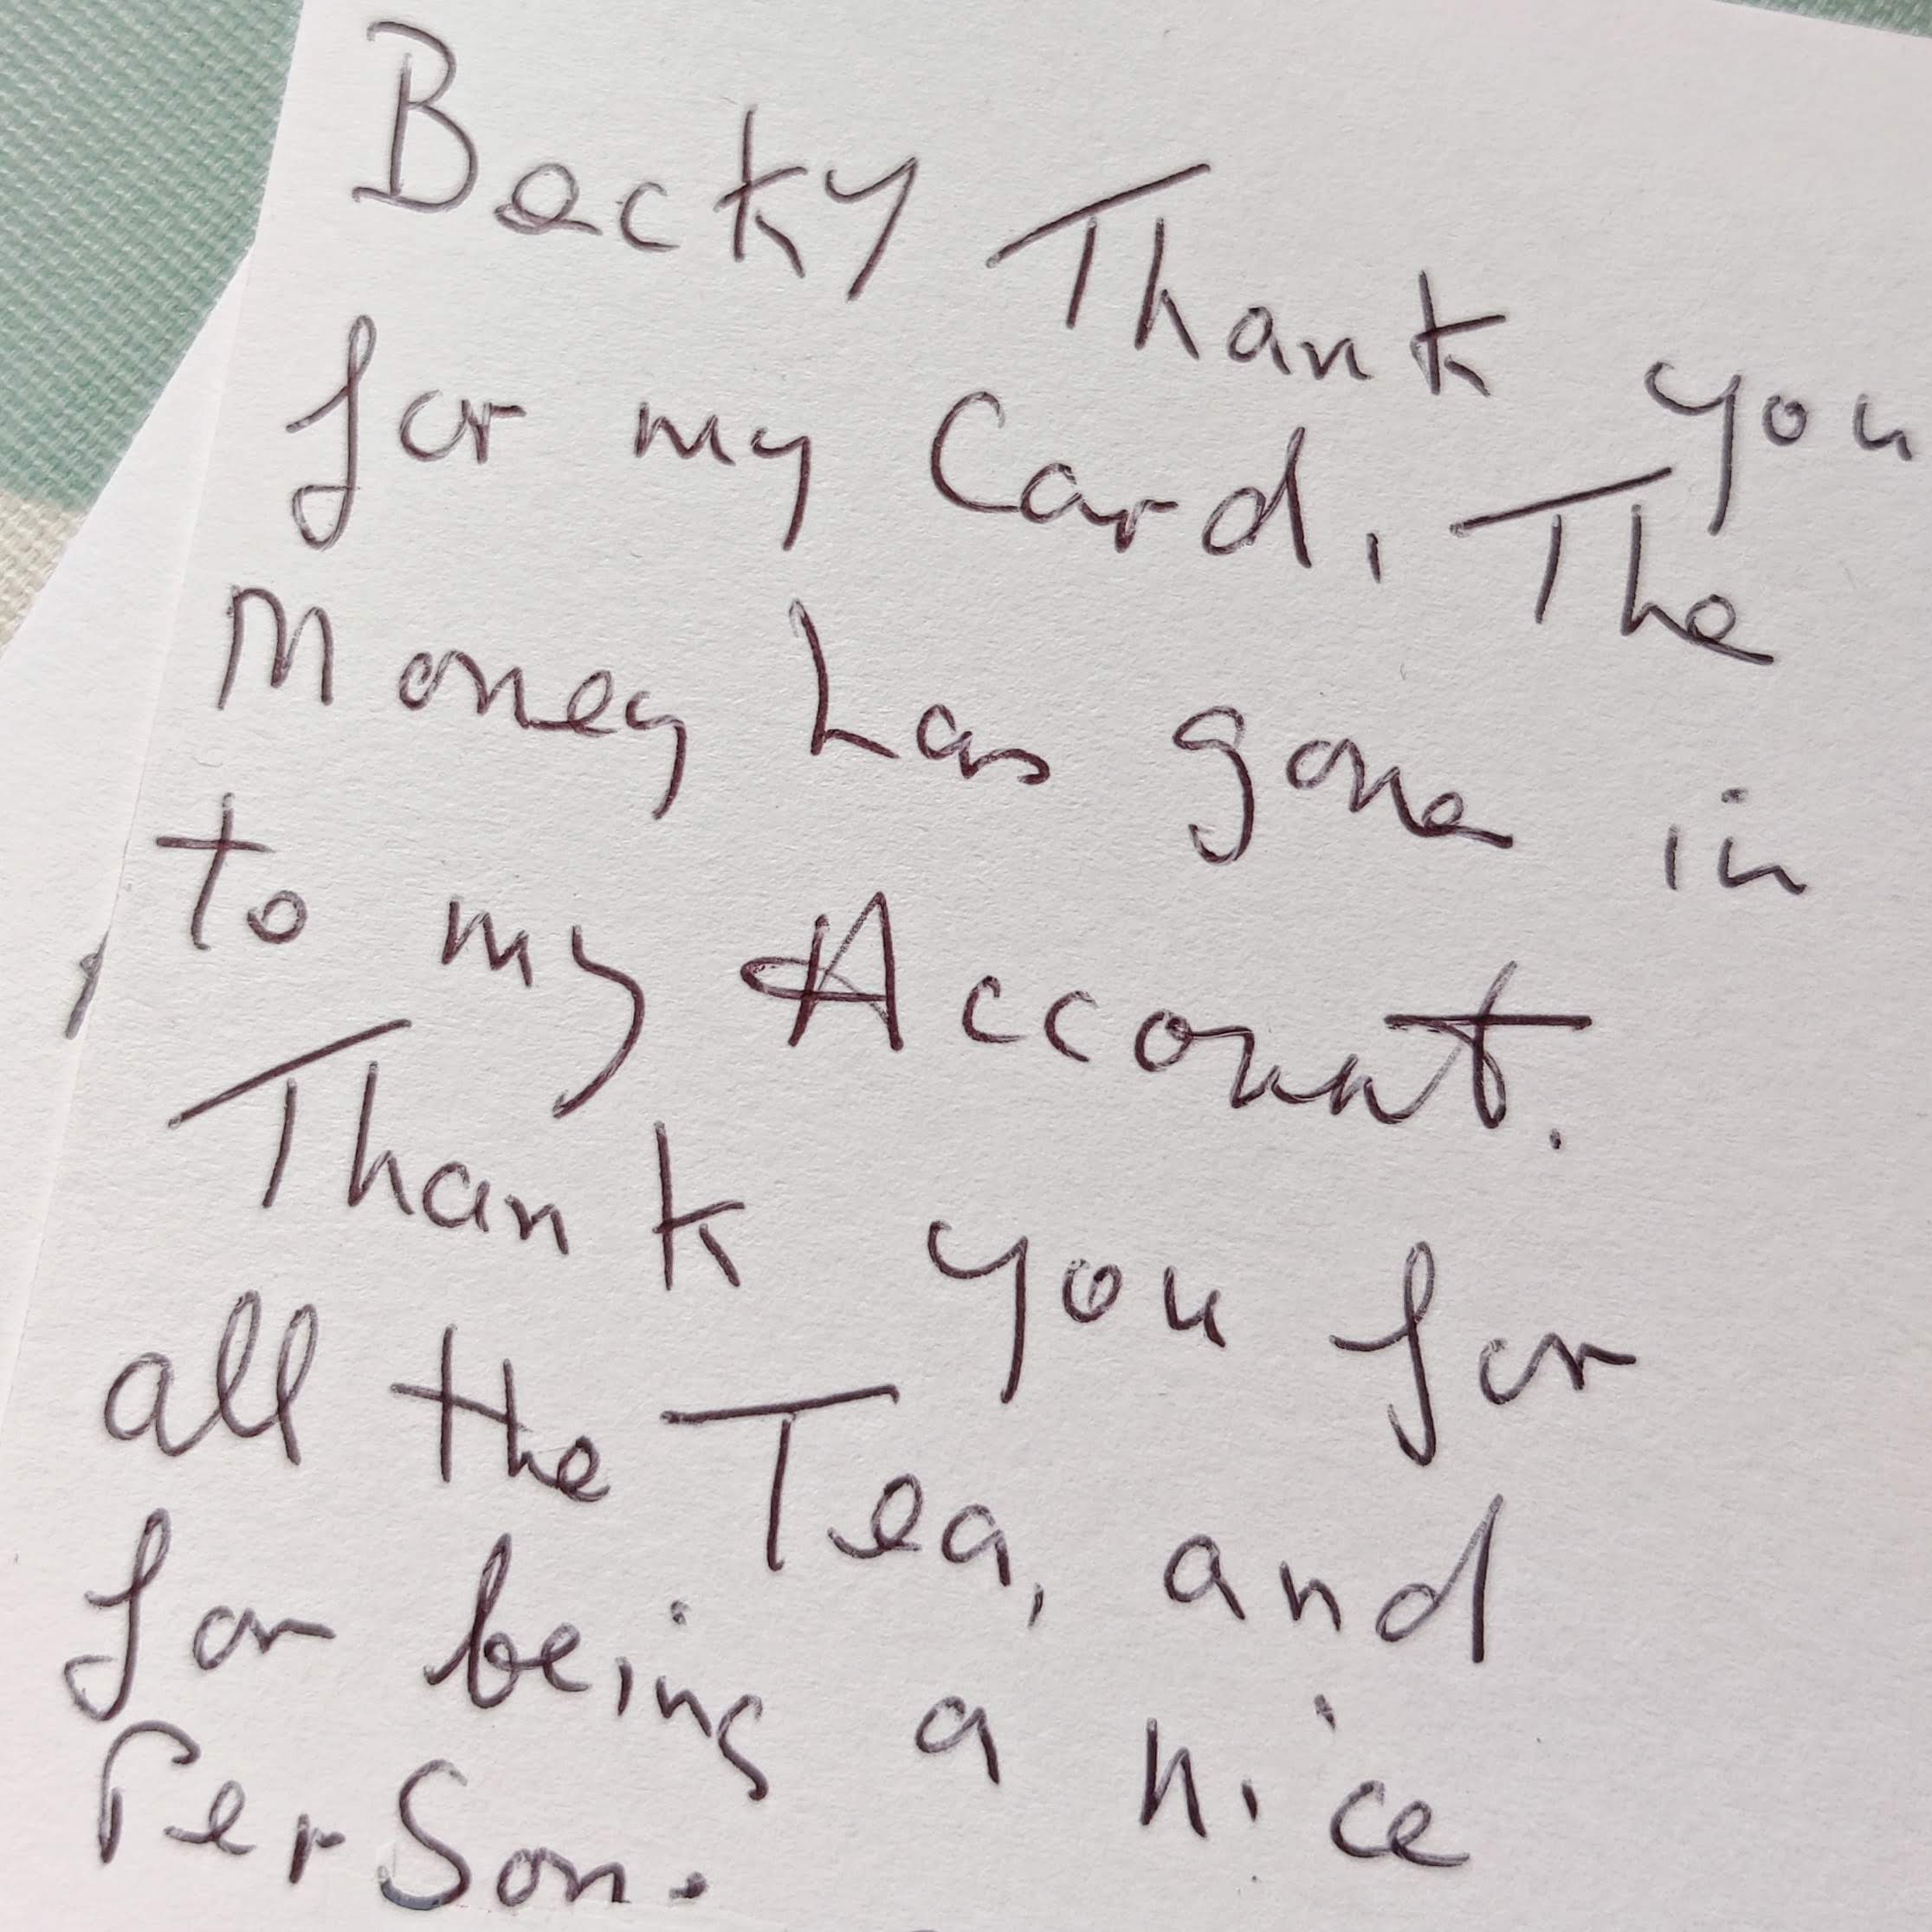 Becky Thank you
for my Card, The
Money has gone in
to my Account.
Thank you for
all the Tea, and
for being a nice
PerSon.